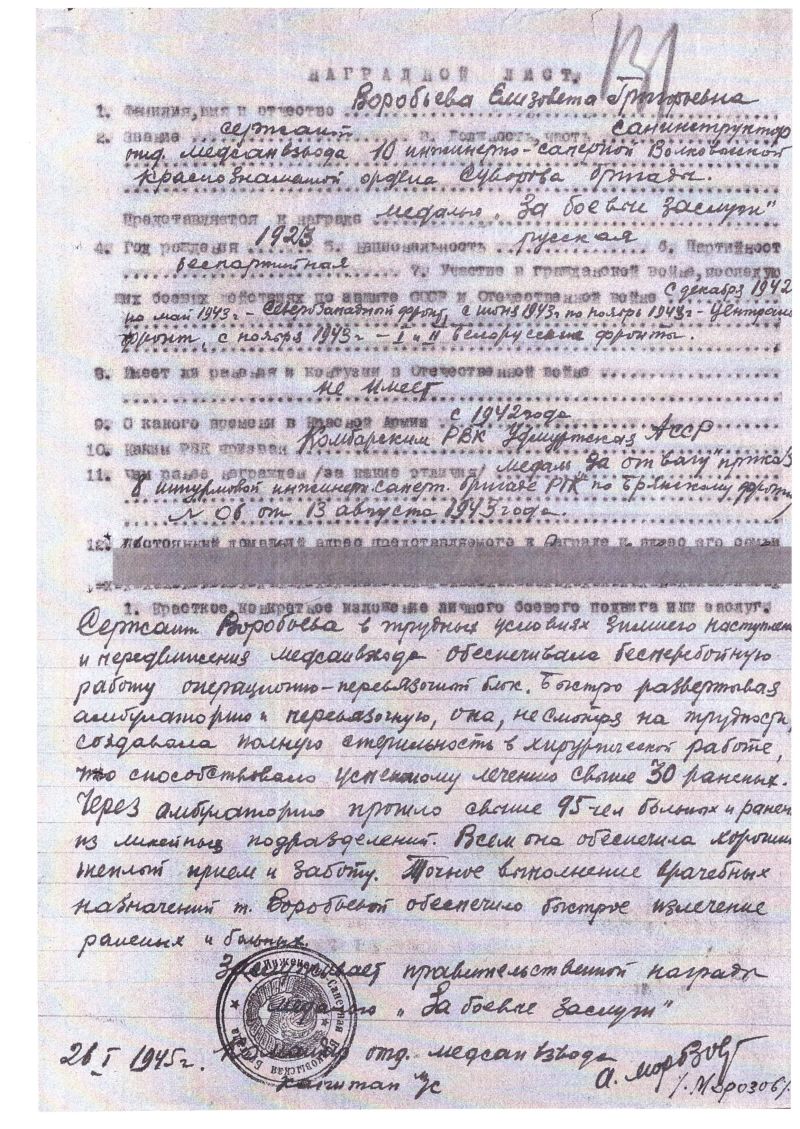 131
НАГРАДНОЙ ЛИСТ.
1. Фамилия, имя и отчество Воробьева Елизовета Григорьевна
2. Звание сержант 3. Должность, часть санинструктор
отд. медсанвзвода 10 инженерно-саперной Волковысской
краснознаменной ордена Суворова бригады.
Представляется к награде медалью "За боевые заслуги"
4. Год рождения 1923 5. национальность русская 6. Партийност
беспартийная 7. Участие в гражданской войне, последую
щих боевых действиях по защите СССР и Отечественной войне с декабря 1942
по май 1943г - Северо Западной фронт, с июня 1943г по ноябрь 1943г - Централь
фронт, с ноября 1943г - I и II белорусские фронты.
8. Имеет ли ранения и контузии в Отечественной войне
не имеет
9. С какого времени в Красной Армии с 1942 года
10. Каким РВК призван Камбарским РВК Удмуртская АССР
11. Чем ранее награжден /за какие отличия/ медаль "За отвагу" приказ
8 штурмовой инженерн. саперн. бригаде РГК по Брянскому фронту
№ 06 от 13 августа 1943 года.
12. Постоянный домашний адрес представляемого к награде и адрес его семьи
1. Краткое, конкретное изложение личного боевого подвига или заслуг.
Сержант Воробьева в трудных условиях зимнего наступлен
и передвижения медсанвзвода обеспечивала бесперебойную
работу операционно-перевязочный блок. Быстро развертывая
амбулаторию и перевязочную, она, несмотря на трудности,
создавала полную стерильность в хирургической работе,
что способствовало успешному лечению свыше 30 раненых.
Через амбулаторию прошло свыше 95 чел больных и ранен
из линейных подразделений. Всем она обеспечила хороший
теплый прием и заботу. Точное выполнение врачебных
назначений т. Воробьевой обеспечило быстрое излечение
раненых и больных.
Заслуживает правительственной награды
медалью "За боевые заслуги"
26 I 1945г. Командир отд. медсанвзвода
капитан м/с
А. Морозов
/Морозов/